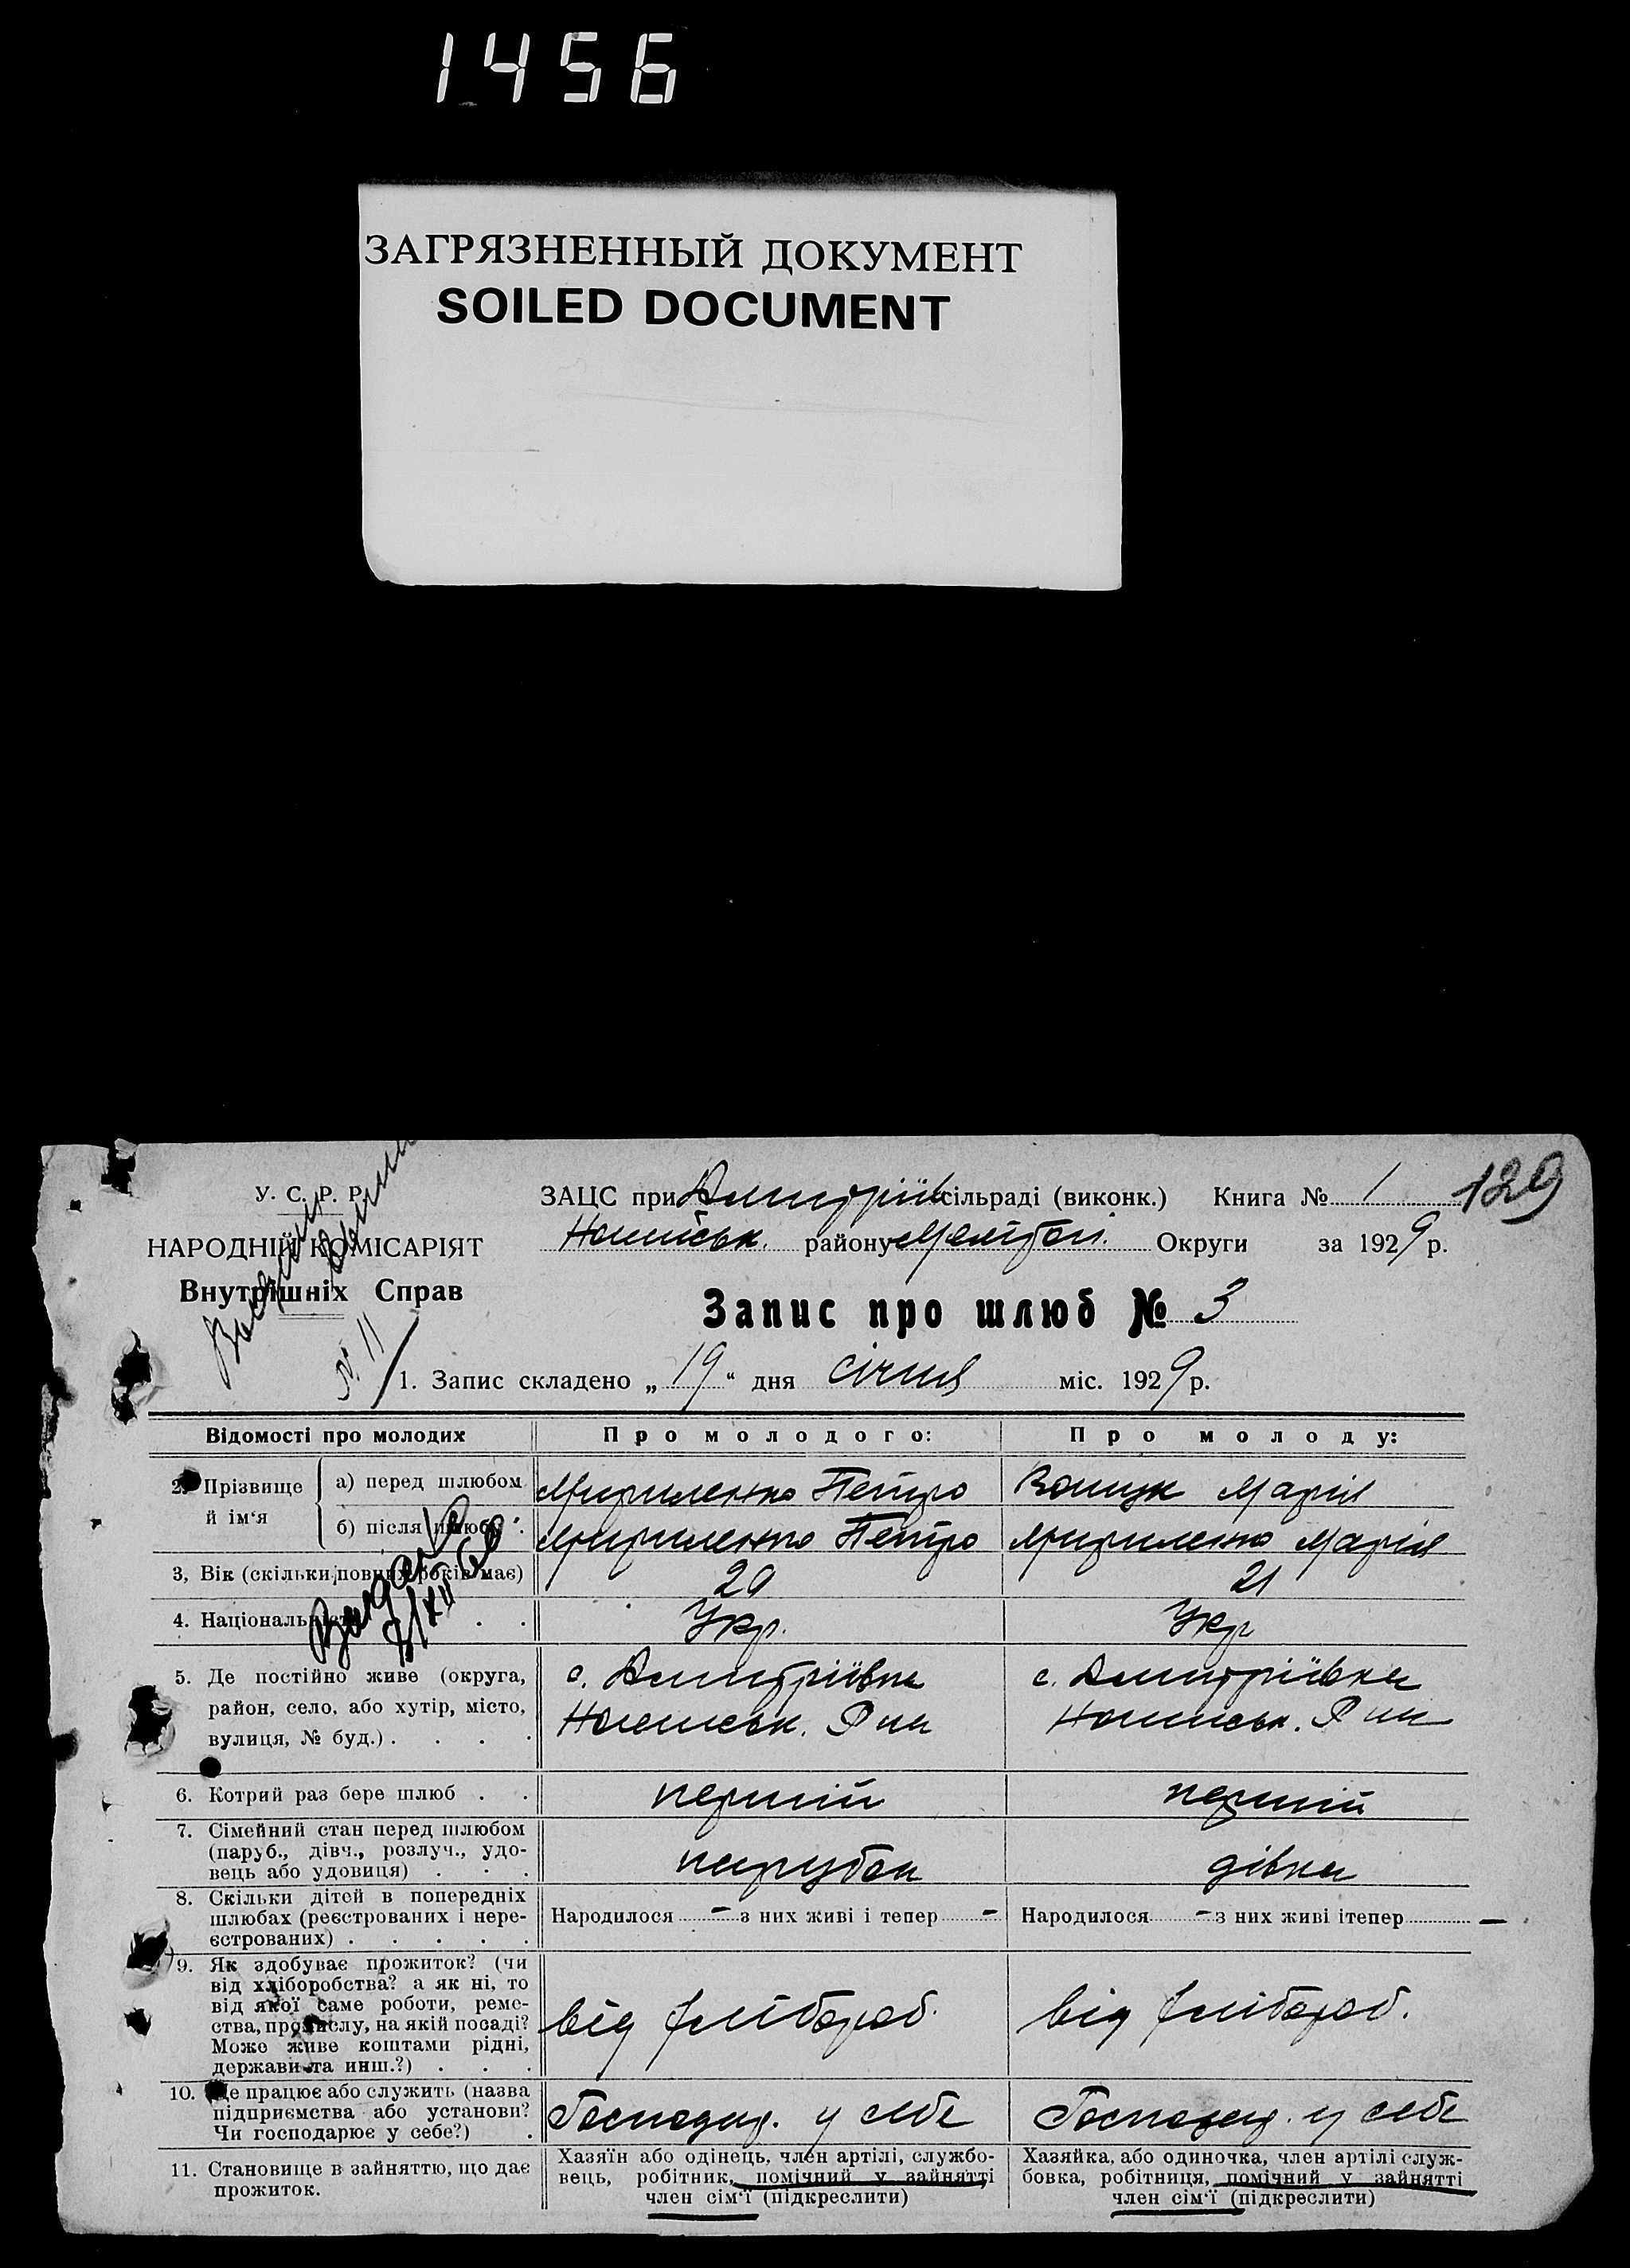 1456
ЗАГРЯЗНЕННЫЙ ДОКУМЕНТ
SOILED DOCUMENT
У. С. Р. Р.
НАРОДНІЙ КОМІСАРІЯТ
Внутрішніх Справ
ЗАЦС при Дмитріїв сільраді (виконк.) Книга № 1 129
району Мелітоп. Округи за 1929 р.
Запис про шлюб № 3
№ 11
1. Запис складено „19“ дня січня міс. 1929 р.
Відомості про молодих Про молодого: Про молоду:
2. Прізвище й ім‘я а) перед шлюбом Петро Марія
б) після шлюбу Петро Марія
3, Вік (скільки повних років має) 20 21
4. Національність Укр. Укр
5. Де постійно живе (округа, с. Дмитріївка с. Дмитріївка
район, село, або хутір, місто,
вулиця, № буд.)
6. Котрий раз бере шлюб перший перший
7. Сімейний стан перед шлюбом
(паруб., дівч., розлуч., удо-
вець або удовиця) парубок дівка
8. Скільки дітей в попередніх
шлюбах (реєстрованих і нере- Народилося - з них живі і тепер - Народилося - з них живі ітепер -
єстрованих)
9. Як здобуває прожиток? (чи
від хліборобства? а як ні, то
від якої саме роботи, реме-
ства, промислу, на якій посаді? від хлібороб. від хлібороб.
Може живе коштами рідні,
держави та инш.?)
10. Де працює або служить (назва
підприємства або установи? Господар. у себе Господар. у себе
Чи господарює у себе?)
11. Становище в зайняттю, що дає
прожиток.
Хазяїн або одінець, член артілі, службо-
вець, робітник, помічний у зайнятті
член сім‘ї (підкреслити)
Хазяйка, або одиночка, член артілі служ-
бовка, робітниця, помічний у зайнятті
член сім‘ї (підкреслити)